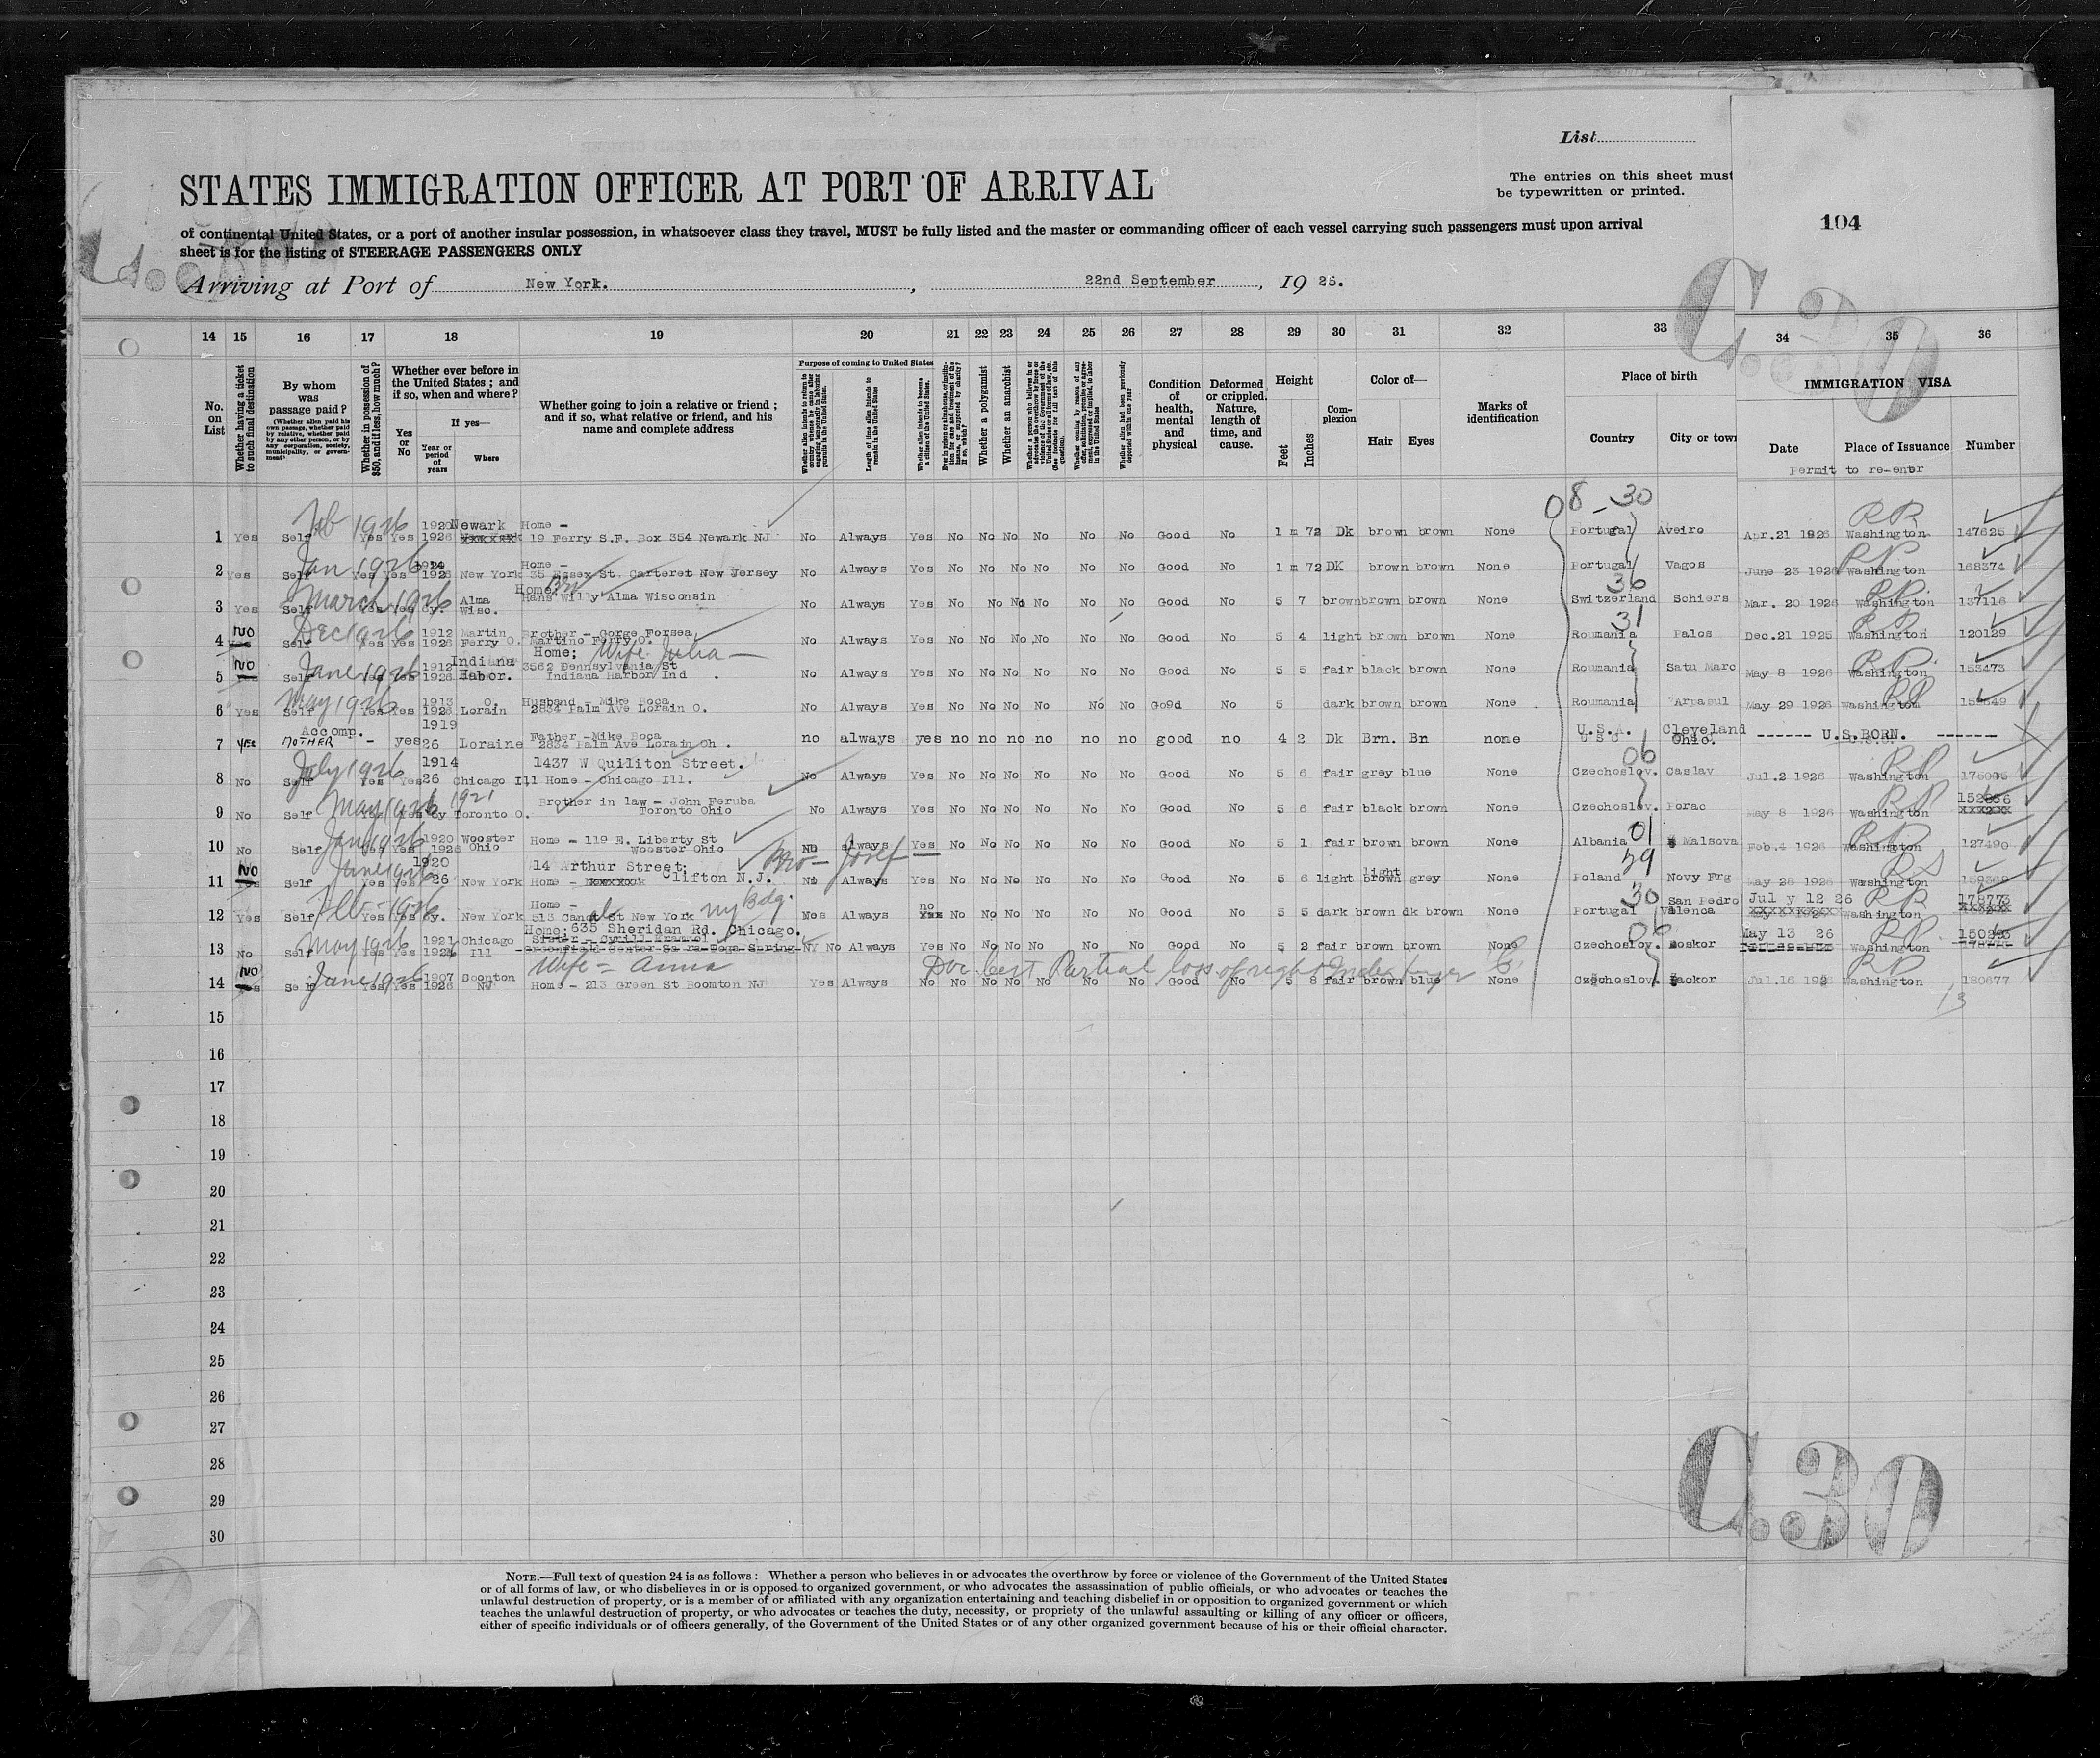 List
The entries on this sheet must
be typewritten or printed.
104
STATES IMMIGRATION OFFICER AT PORT OF ARRIVAL
of continental United States, or a port of another insular possession, in whatsoever class they travel, MUST be fully listed and the master or commanding officer of each vessel carrying such passengers must upon arrival
sheet is for the listing of STEERAGE PASSENGERS ONLY
Arriving at Port of New York. , 22nd September , 19 26.
C.30
14 15 16 17 18 19 20 21 22 23 24 25 26 27 28 29 30 31 32 33 34 35 36
No. on List
Whether having a ticket to such final destination
By whom was passage paid?
(Whether alien paid his own passage, whether paid by relative, whether paid by any other person, or by any corporation, society, municipality, or government)
Whether in possession of $50, and if less, how much?
Whether ever before in the United States; and if so, when and where?
Yes or No
If yes—
Year or period of years
Where
Whether going to join a relative or friend; and if so, what relative or friend, and his name and complete address
Purpose of coming to United States
Length of time alien intends to remain in the United States
Whether alien intends to become a citizen of the United States.
Whether a polygamist
Whether an anarchist
Whether alien had been previously deported within one year
Condition of health, mental and physical
Deformed or crippled. Nature, length of time, and cause.
Height
Feet Inches
Complexion
Color of—
Hair Eyes
Marks of identification
Place of birth
Country City or town
IMMIGRATION VISA
Date Place of Issuance Number
Permit to re-enter
08-30
1 Yes Self Feb 1926 Yes Yes 1920 1926 Newark Home - 19 Ferry S.F. Box 354 Newark NJ No Always Yes No No No No No No Good No 1 m 72 Dk brown brown None Portugal Aveiro Apr.21 1926 Washington 147625
2 Yes Self Jan 1926 Yes Yes 1926 New York Home - 35 Essex St. Carteret New Jersey No Always Yes No No No No No No Good No 1 m 72 DK brown brown None Portugal Vagos June 23 1926 Washington 168374
3 Yes Self March 1926 Yes Yes cy. Alma Wisc. Home: Hans Willy Alma Wisconsin No Always Yes No No No No No No Good No 5 7 brown brown brown None 36 Switzerland Schiers Mar. 20 1926 Washington 137116
4 NO Self Dec 1926 Yes Yes 1912 1926 Martin Ferry O. Brother - Gorge Forsea Martino Ferry O. No Always Yes No No No No No No Good No 5 4 light brown brown None 31 Roumania Palos Dec.21 1925 Washington 120129
5 NO Self June 1926 Yes Yes 1912 1926 Indiana Habor. Home; Wife Julia 3562 Pennsylvania St Indiana Harbor Ind . No Always Yes No No No No No No Good No 5 5 fair black brown None Roumania Satu Marc May 8 1926 Washington 153473
6 Yes Self May 1926 Yes Yes 1913 1926 O. Lorain Husband - Mike Boca 2834 Palm Ave Lorain O. No Always Yes No No No No No No Good No 5 dark brown brown None Roumania Arpasul May 29 1926 Washington
7 yes Accomp. MOTHER - yes 1919 26 Loraine Father -Mike Boca 2834 Palm Ave Lorain Oh . no always yes no no no no no no good no 4 2 Dk Brn. Br none U.S.A. Cleveland Ohio. ------ U.S.BORN. ------
8 No Self July 1926 Yes Yes 1914 26 Chicago Ill 1437 W Quiliton Street. Home - Chicago Ill. No Always Yes No No No No No No Good No 5 6 fair grey blue None 06 Czechoslov. Caslav Jul.2 1926 Washington 175005
9 No Self May 1926 Yes Yes cy 1921 Toronto O. Brother in law - John Feruba Toronto Ohio No Always Yes No No No No No No Good No 5 6 fair black brown None Czechoslov. Porac May 8 1926 Washington
10 No Self Jan 1926 Yes Yes 1920 1926 Wooster Ohio Home - 119 E. Liberty St Wooster Ohio No always Yes No No No No No No Good No 5 1 fair brown brown None 01 Albania Malsova Feb.4 1926 Washington 127490
11 NO Self June 1926 Yes Yes 1920 26 New York 14 Arthur Street; Home - Clifton N.J. Bro - Josef No Always Yes No No No No No No Good No 5 6 light light brown grey None 29 Poland Novy Frg May 28 1926 Washington
12 Yes Self 1926 Yes Yes cy. New York Home - 513 Canal St New York ny Bdg. Always no No No No No No No Good No 5 5 dark brown dk brown None 30 Portugal San Pedro Valenca Jul y 12 26 Washington 178773
13 No Self May 1926 Yes Yes 1921 Chicago Ill Home; 635 Sheridan Rd. Chicago. No Always Yes No No No No No No Good No 5 2 fair brown brown None 06 Czechoslov. Boskor May 13 26 Washington
14 NO Self June 1926 Yes Yes 1907 1926 Boonton NJ Wife - Anna Home - 213 Green St Boomton NJ Yes Always No No No No No No No Good No 5 8 fair brown blue None Czechoslov. Jul.16 1926 Washington 180677
Doc. cert Partial loss of right Index finger
13
15
16
17
18
19
20
21
22
23
24
25
26
27
28
29
30
C.30
NOTE.—Full text of question 24 is as follows: Whether a person who believes in or advocates the overthrow by force or violence of the Government of the United States
or of all forms of law, or who disbelieves in or is opposed to organized government, or who advocates the assassination of public officials, or who advocates or teaches the
unlawful destruction of property, or is a member of or affiliated with any organization entertaining and teaching disbelief in or opposition to organized government or which
teaches the unlawful destruction of property, or who advocates or teaches the duty, necessity, or propriety of the unlawful assaulting or killing of any officer or officers,
either of specific individuals or of officers generally, of the Government of the United States or of any other organized government because of his or their official character.